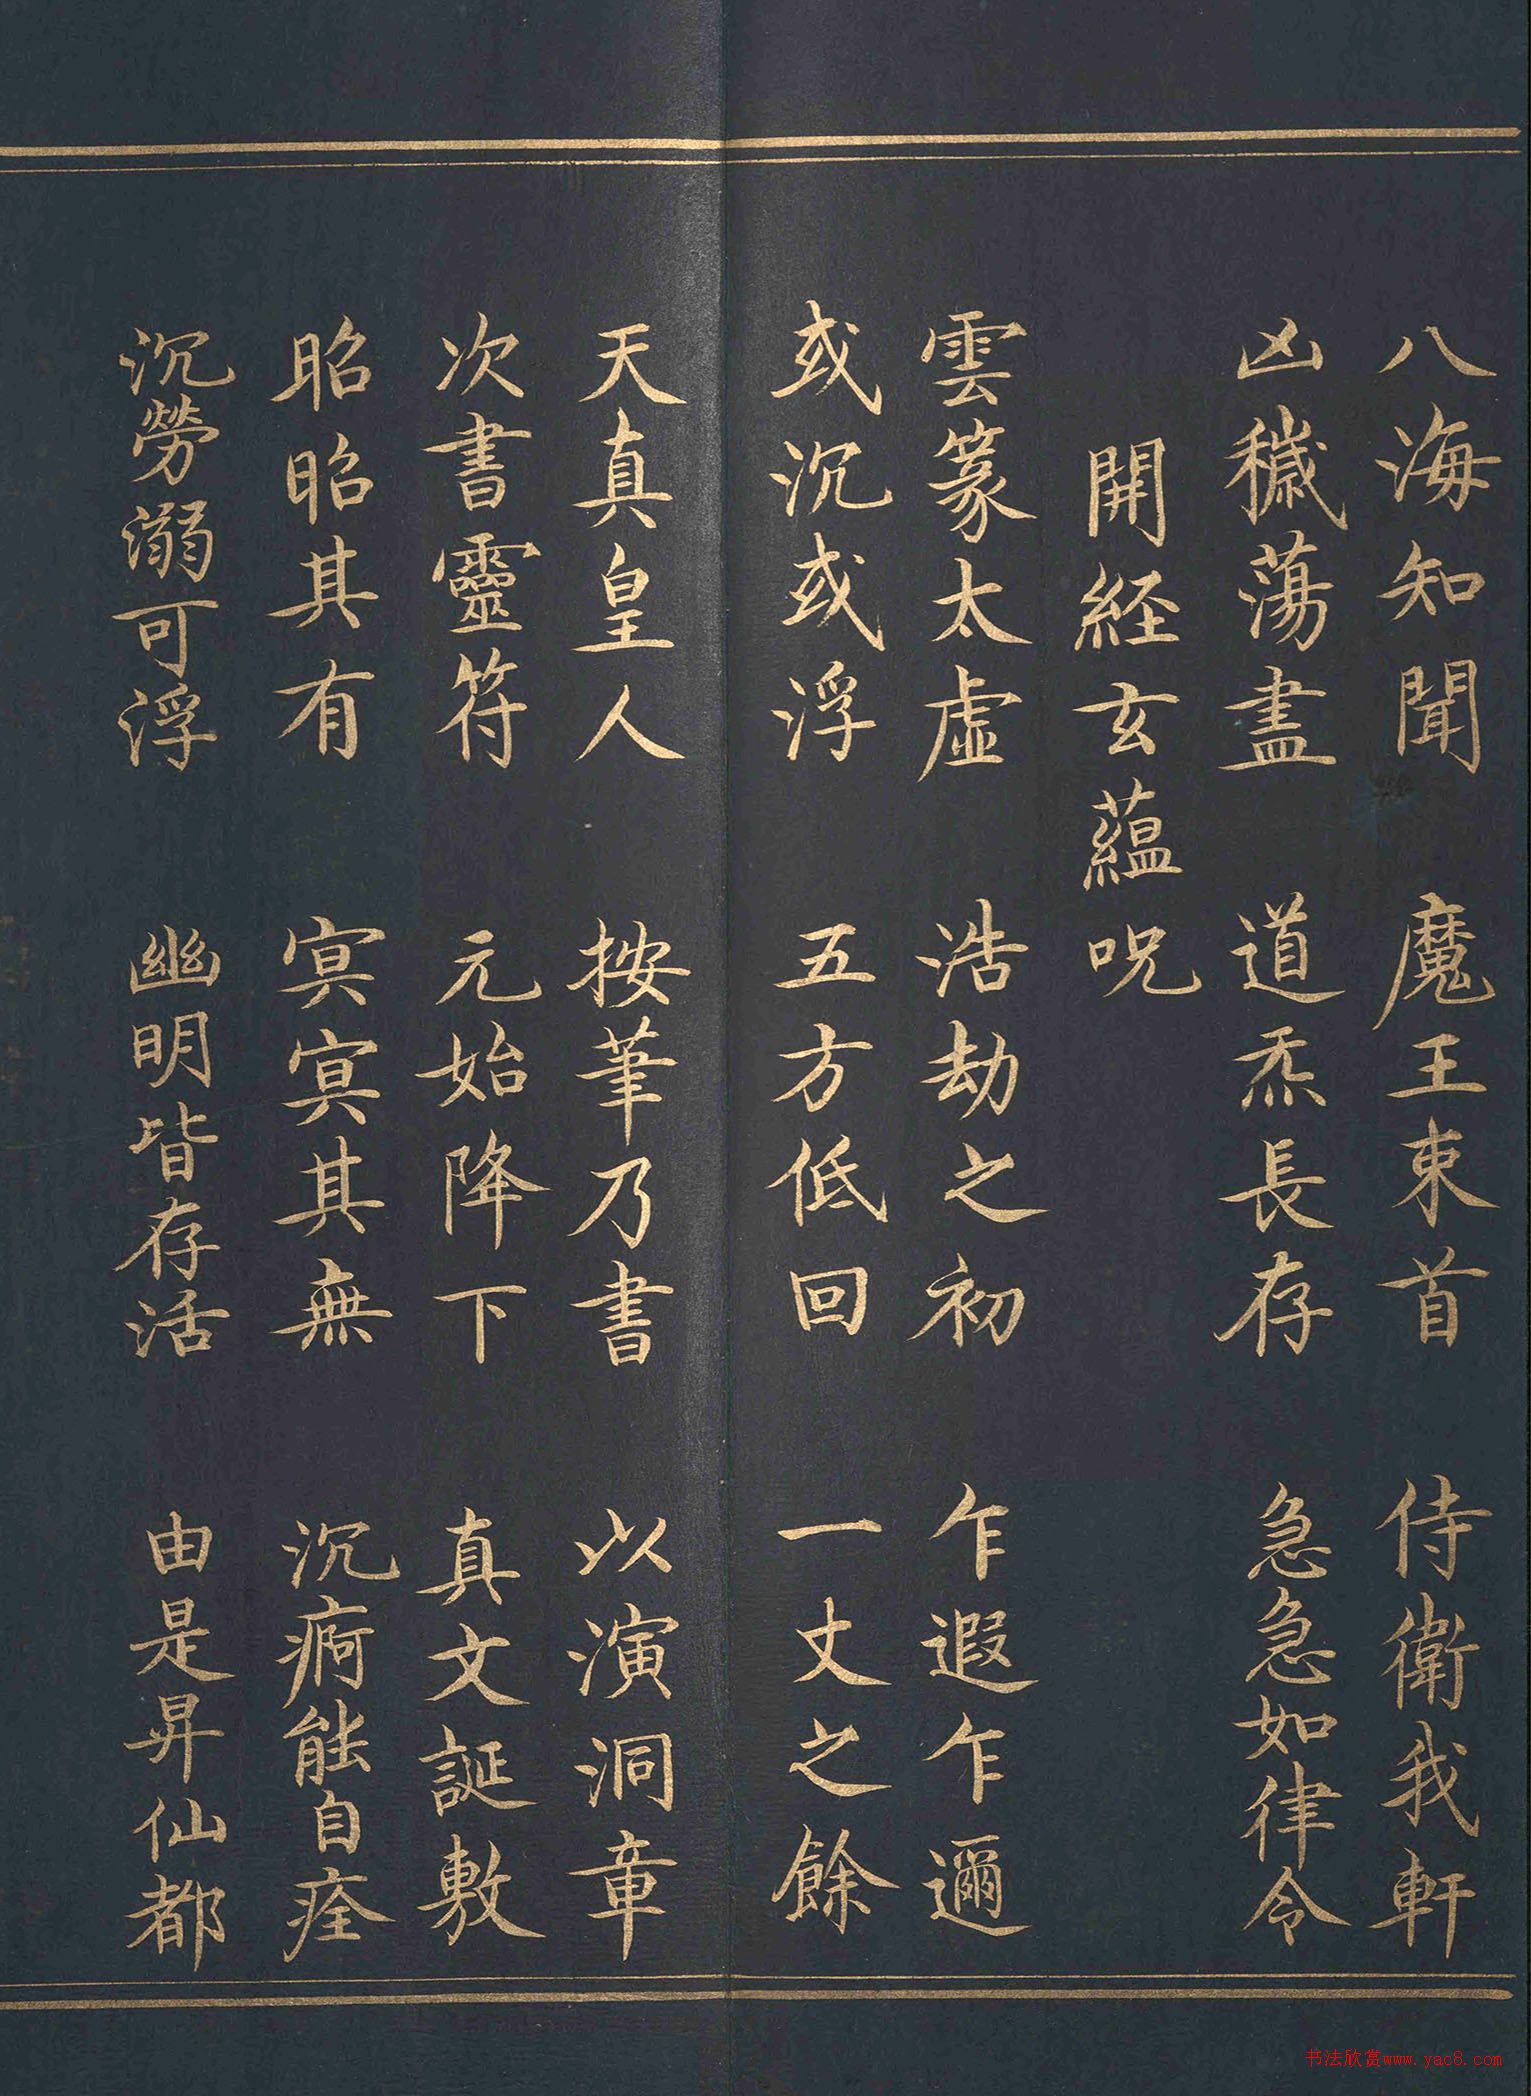 八海知聞　魔王束首　侍衛我軒
凶穢蕩盡　道炁長存　急急如律令
開經玄蘊咒
雲篆太虛　浩劫之初　乍遐乍邇
或沉或浮　五方低回　一丈之餘
天真皇人　按筆乃書　以演洞章
次書靈符　元始降下　真文誕敷
昭昭其有　冥冥其無　沉痾能自痊
沉勞溺可浮　幽明皆存活　由是昇仙都
书法欣赏www.yac8.com